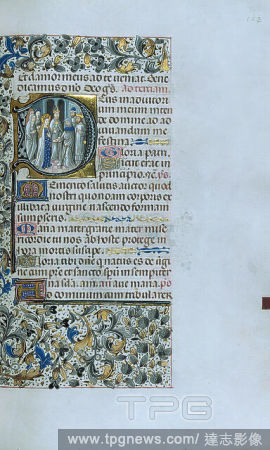 Et clamor meus ad te veniat. Bene
dicamus dno Deo gras. Ad terciam.
Deus in adiutori
um meum inten
de domine ad ad
iuuandum me
festina.
Gloria patri
sicut erat in
principio
Memento salutis auctor quod
nostri quondam corporis ex
illibata uirgine nascendo formam
sumpseris.
Maria mater gracie mater miseri
cordie tu nos ab hoste protege in
hora mortis suscipe.
Gloria tibi domine qui natus es de uirgi
ne cum patre et sancto spiritu in sempiter
na secula. amen. aue maria.
Ad dominum cum tribularer
TPG
www.tpgnews.com/ 達志影像